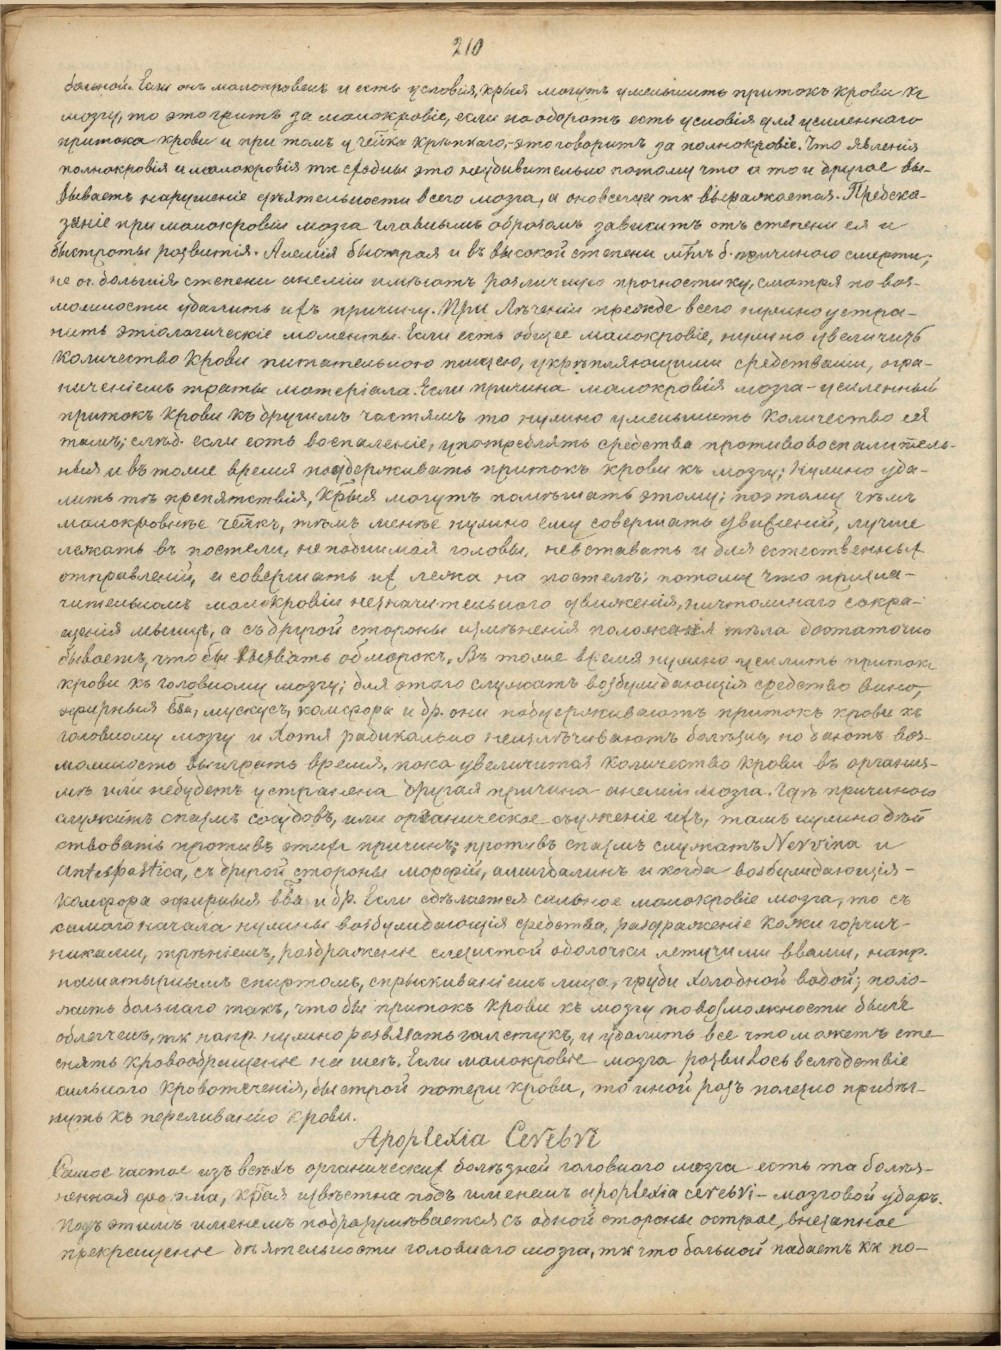 210
больной. Если онъ малокровенъ и есть условія, крыя могутъ уменьшить притокъ крови къ
мозгу, то это гритъ за малокровіе, если наоборотъ есть условія для усиленнаго
притока крови и при томъ у чѣлка крѣпкаго, – это говоритъ за полнокровіе. Что явленія
полнокровія и малокровія тк сходны это неудивительно потому что а то и другое вы-
зываетъ нарушеніе дѣятельности всего мозга, а оно всегда тк выражается. Предска-
заніе при малокровіи мозга главнымъ образомъ зависитъ отъ степени ея и
быстроты развитія. Анемія быстрая и въ высокой степени мтъ б. причиною смерти;
не ос. большія степени анеміи имѣютъ различную прогностику, смотря по воз-
можности удалить их причину. При Лѣченіи прежде всего нужно устра-
нить этіологическіе моменты. Если есть общее малокровіе, нужно увеличить
количество крови питательною пищею, укрѣпляющими средствами, огра-
ниченіемъ траты матеріала. Если причина малокровія мозга – усиленный
притокъ крови къ другимъ частямъ то нужно уменьшить количество ея
тамъ; слѣд. если есть воспаленіе, употреблять средства противовоспалитель-
ныя и въ тоже время поддерживать притокъ крови къ мозгу; нужно уда-
лить тѣ препятствія, крыя могутъ помѣшать этому; поэтому чѣмъ
малокровнѣе чѣлкъ, тѣмъ менѣе нужно ему совершать движеній, лучше
лежать въ постели, не поднимая головы, невставать и для естественныхъ
отправленій, а совершать их лежа на постелѣ; потому что при зна-
чительномъ малокровіи незначительнаго движенія, ничтожнаго сокра-
щенія мышцъ, а съ другой стороны измѣненія положенія тѣла достаточно
бываетъ, чтобы вызвать обморокъ. Въ тоже время нужно усилить притокъ
крови къ головному мозгу; для этого служатъ возбуждающія средства вино,
эфирныя вва, мускусъ, камфора и др. они поддерживаютъ притокъ крови къ
головному мозгу и хотя радикально неизлѣчиваютъ болѣзнь, но даютъ воз-
можность выиграть время, пока увеличится количество крови въ организ-
мѣ или небудетъ устранена другая причина анеміи мозга. Гдѣ причиною
служитъ спазмъ сосудовъ, или органическое съуженіе ихъ, тамъ нужно дѣй
ствовать противъ этихъ причинъ; противъ спазмъ служатъ Nervina и
antispastica, съ другой стороны морфій, амигдалинъ и когда возбуждающія –
камфора эфирныя вва и др. Если сдѣлается сильное малокровіе мозга, то съ
самаго начала нужны возбуждающія средства, раздраженіе кожи горчич-
никами, трѣніемъ, раздраженіе слизистой оболочки летучими ввами, напр.
нашатырнымъ спиртомъ, спрыскиваніемъ лица, груди холодной водой; поло-
жить больнаго такъ, чтобы притокъ крови къ мозгу повозможности былъ
облегченъ, тк напр. нужно развязать галстукъ, и удалить все что можетъ сте
снять кровообращеніе на шеѣ. Если малокровіе мозга развилось вслѣдствіе
сильнаго кровотеченія, быстрой потери крови, то иной разъ полезно прибѣг-
нуть къ переливанію крови.
Apoplexia Cerebri
Самое частое изъ всѣхъ органическихъ болѣзней головнаго мозга есть та болѣз-
ненная форма, края извѣстна подъ именемъ apoplexia cerebri – мозговой ударъ.
Подъ этимъ именемъ подразумѣвается съ одной стороны острое, внезапное
прекращеніе дѣятельности головнаго мозга, тк что больной падаетъ кк по-